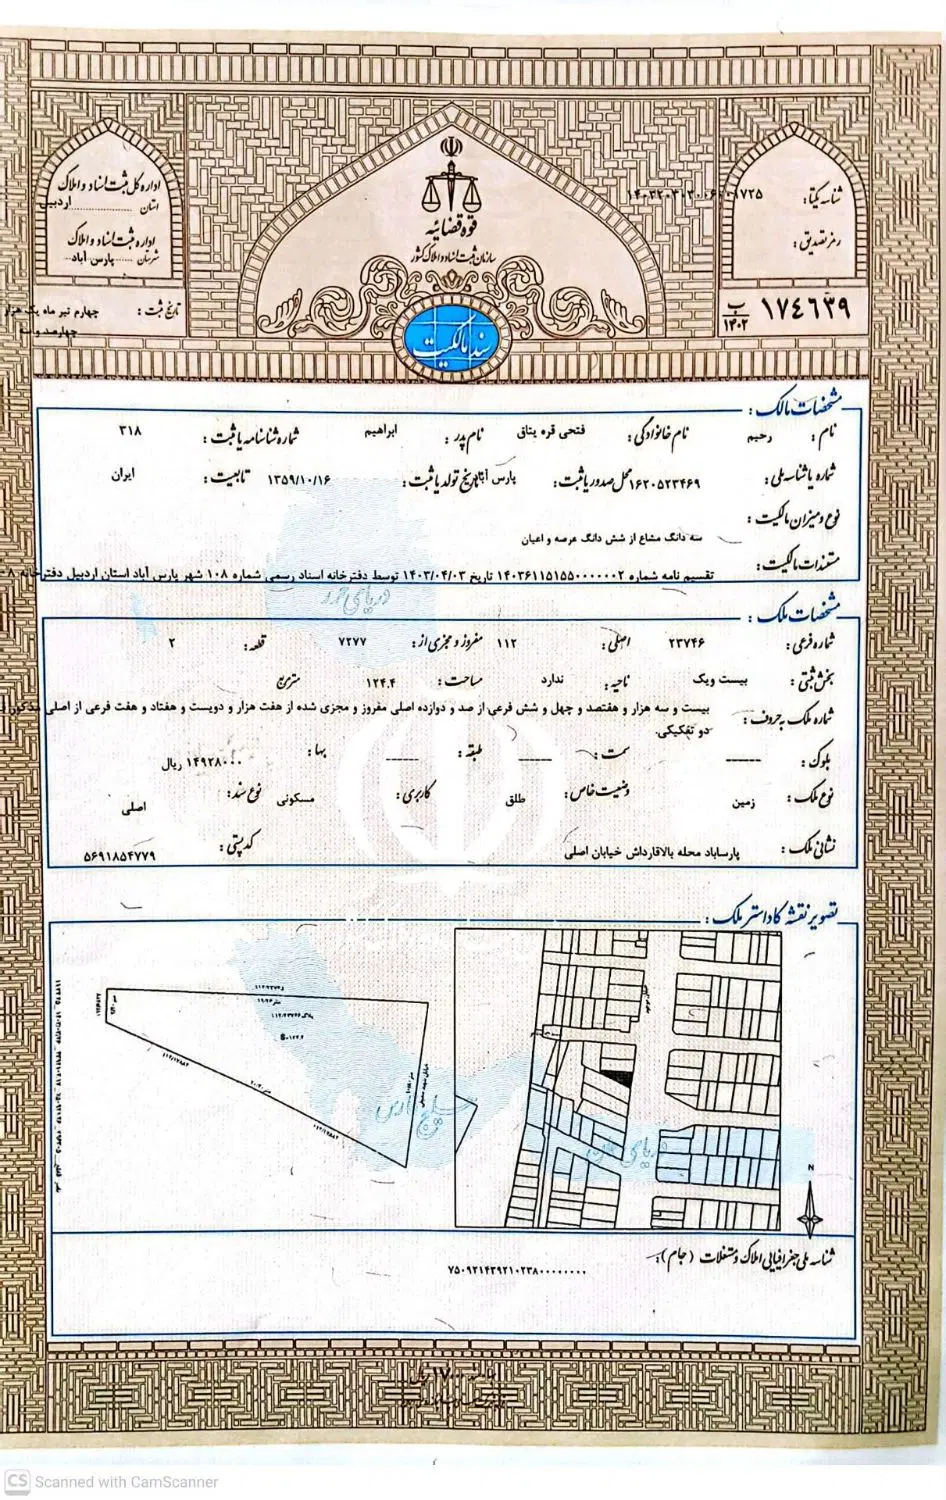 قوه قضائیه
سازمان ثبت اسناد و املاک کشور
سند مالکیت
اداره کل ثبت اسناد و املاک
استان اردبیل
اداره ثبت اسناد و املاک
شهرستان پارس آباد
تاریخ ثبت : چهارم تیر ماه یک هزار
چهارصد و سه
شناسه یکتا :
رمز تصدیق :
۱۷۴۶۳۹ ب ۱۴۰۲
مشخصات مالک :
نام : رحیم نام خانوادگی : فتحی قره یتاق نام پدر : ابراهیم شماره شناسنامه یا ثبت : ۳۱۸
شماره یا شناسه ملی : ۱۶۲۰۵۲۳۴۶۹ محل صدور یا ثبت : پارس آباد تاریخ تولد یا ثبت : ۱۳۵۹/۱۰/۱۶ تابعیت : ایران
نوع و میزان مالکیت :
سه دانگ مشاع از شش دانگ عرصه و اعیان
مستندات مالکیت :
تقسیم نامه شماره ۱۴۰۳۶۱۱۵۱۵۵۰۰۰۰۰۰۲ تاریخ ۱۴۰۳/۰۴/۰۳ توسط دفترخانه اسناد رسمی شماره ۱۰۸ شهر پارس آباد استان اردبیل دفترخانه
مشخصات ملک :
شماره فرعی : ۲۳۷۴۶ اصلی : ۱۱۲ مفروز و مجزی از : ۷۲۷۷ قطعه : ۲
بخش ثبتی : بیست ویک ناحیه : ندارد مساحت : ۱۲۴.۴ مترمربع
شماره ملک به حروف : بیست و سه هزار و هفتصد و چهل و شش فرعی از صد و دوازده اصلی مفروز و مجزی شده از هفت هزار و دویست و هفتاد و هفت فرعی از اصلی مذکور
دو تفکیکی.
بلوک : ------ سمت : ------ طبقه : ------ بها : ۱۴۹۲۸۰۰۰ ریال
نوع ملک : زمین وضعیت خاص : طلق کاربری : مسکونی نوع سند : اصلی
نشانی ملک : پارساباد محله بالاقارداش خیابان اصلی کد پستی : ۵۶۹۱۸۵۴۷۷۹
تصویر نقشه کاداستر ملک :
N
دریای خزر
خلیج فارس
دریای عمان
شناسه ملی جغرافیایی املاک و مستغلات (جام) :
۷۵۰۹۲۱۴۳۹۲۱۰۲۳۸۰۰۰۰۰۰۰۰۰
CS Scanned with CamScanner